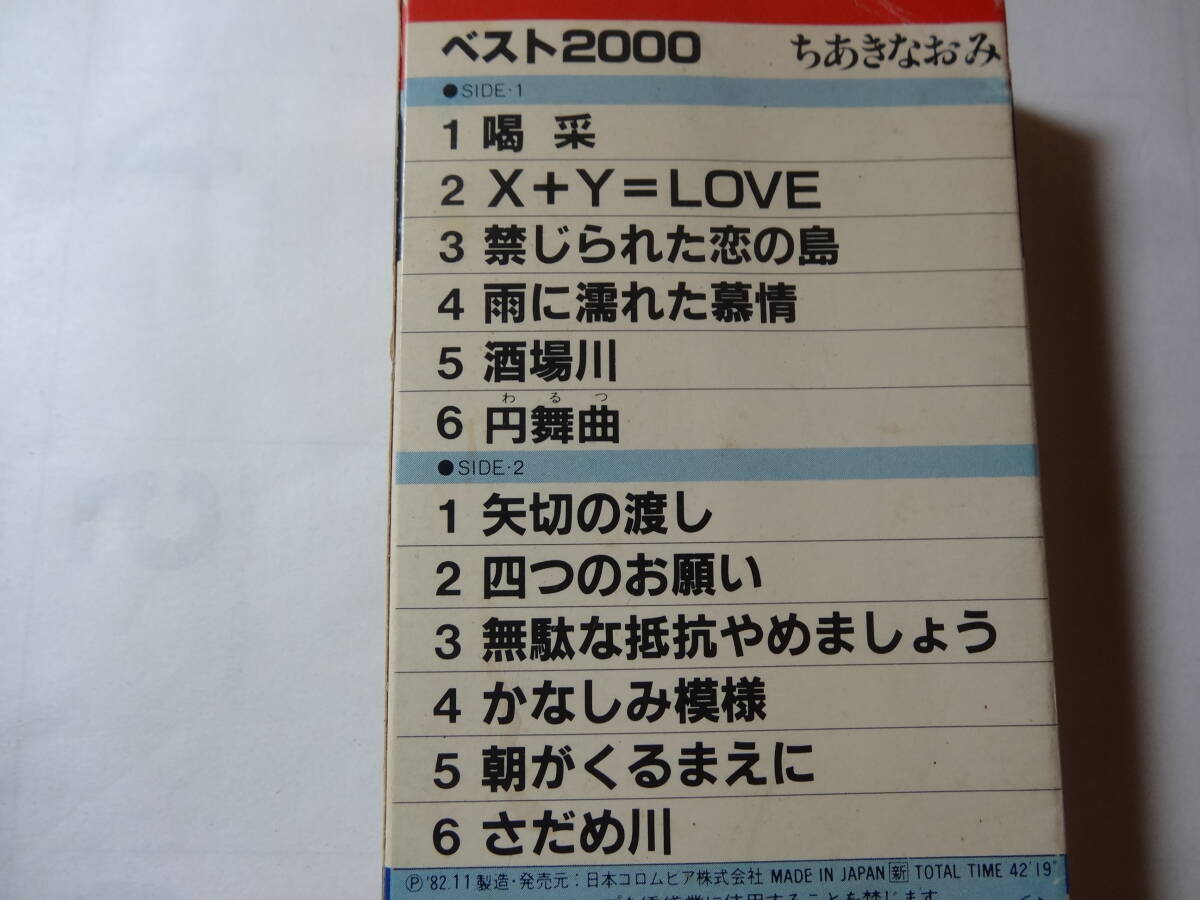 ベスト2000 ちあきなおみ
●SIDE・1
1 喝采
2 X+Y=LOVE
3 禁じられた恋の島
4 雨に濡れた慕情
5 酒場川
わるつ
6 円舞曲
●SIDE・2
1 矢切の渡し
2 四つのお願い
3 無駄な抵抗やめましょう
4 かなしみ模様
5 朝がくるまえに
6 さだめ川
Ⓟ'82.11 製造・発売元:日本コロムビア株式会社 MADE IN JAPAN 新 TOTAL TIME 42'19"